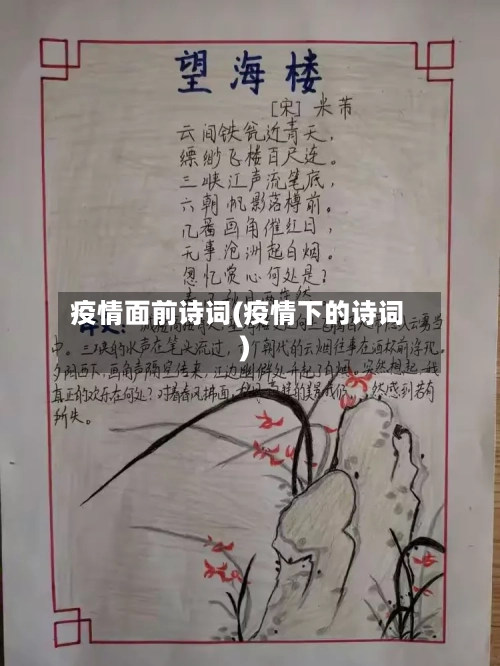 望海楼
[宋] 米芾
云间铁瓮近青天,
缥缈飞楼百尺连。
三峡江声流笔底,
六朝帆影落樽前。
几番画角催红日,
无事沧洲起白烟。
忽忆赏心何处是?
疫情面前诗词(疫情下的诗词
)
中。三峡的水声在笔尖流过,个朝代的云烟往事在酒杯前浮现。
夕阳西下,画角声随早传来,江边幽僻处升起了白烟。突然想起,我
真正的欢乐在何处?对着春风拂面,
然感到若有
所失。